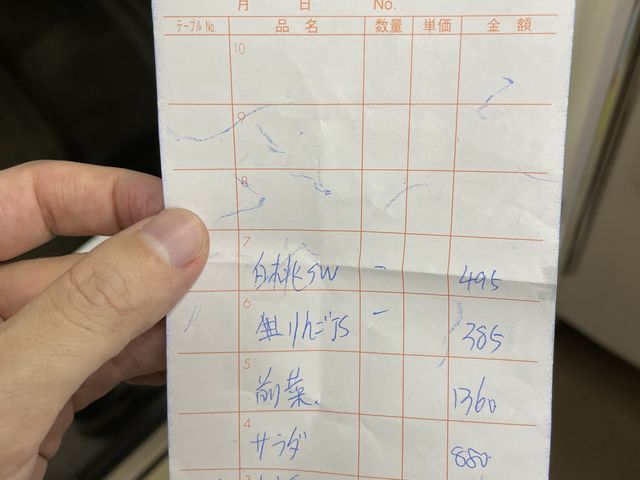 月 日 No.
テーブルNo. 品名 数量 単価 金額
10
9
8
7 白桃SW 一 495
6 りんごJS 一 385
5 前菜. 1360
4 サラダ 880